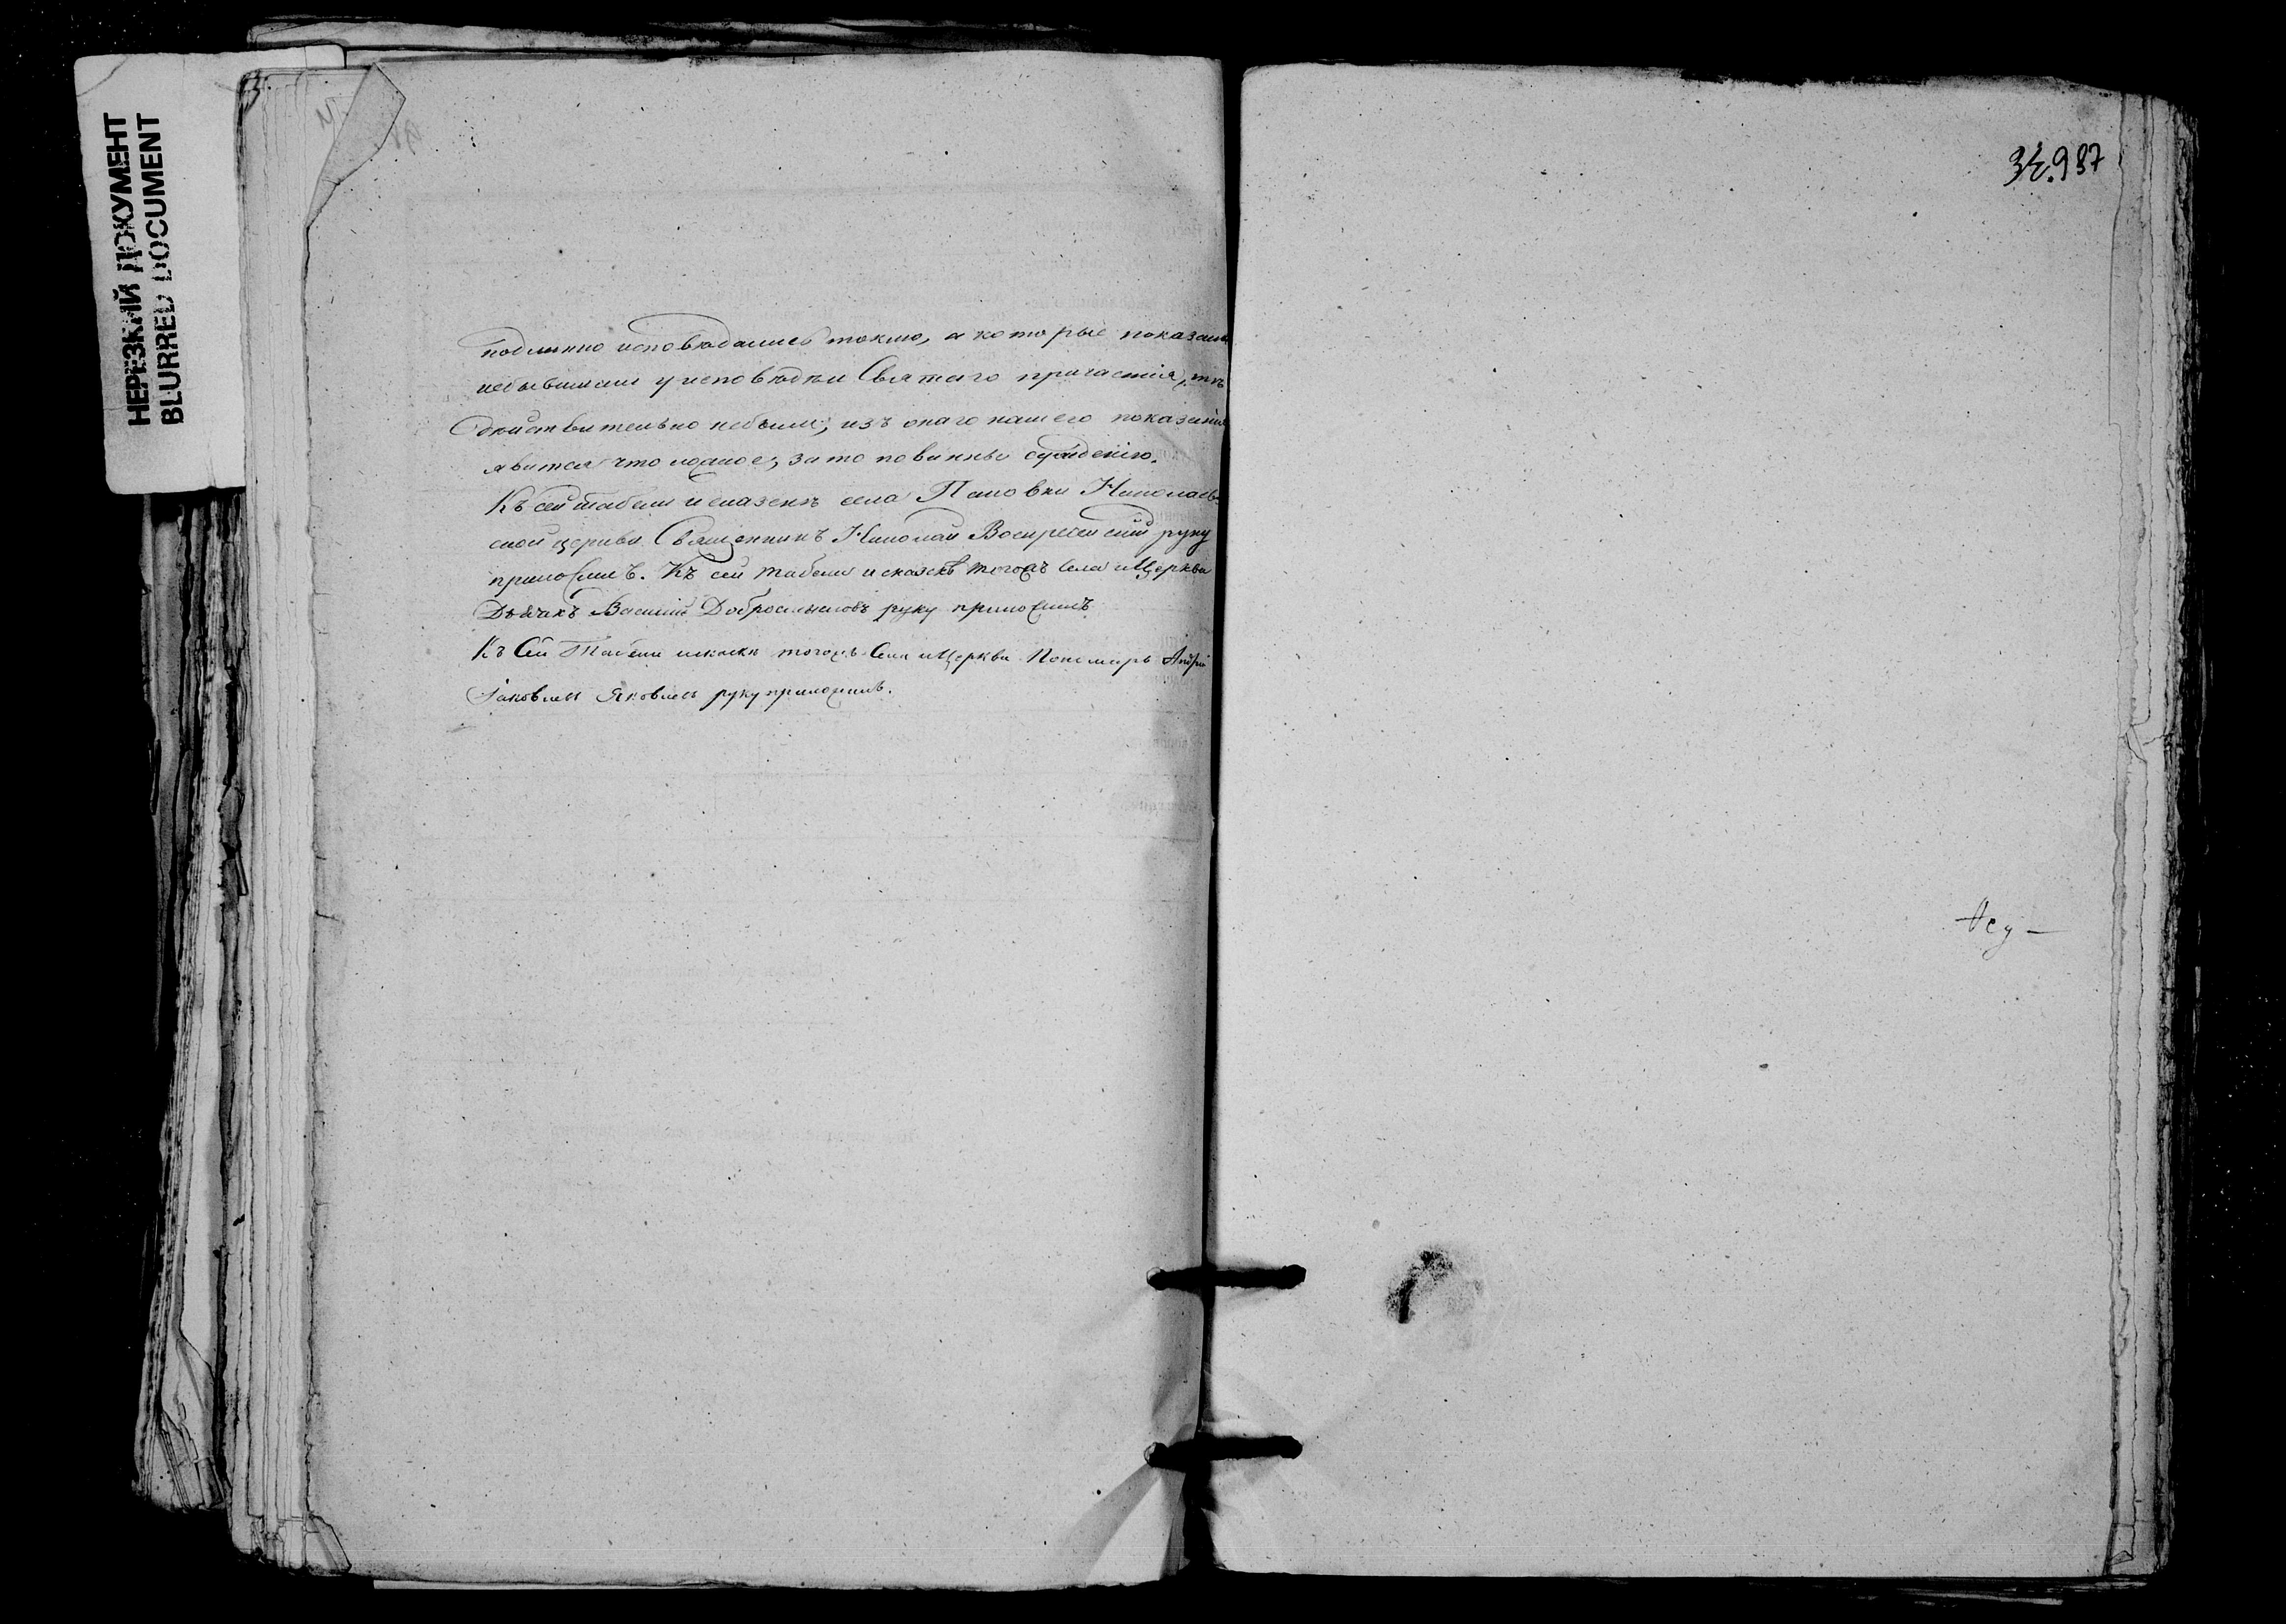 НЕРЕЗКИЙ ДОКУМЕНТ
BLURRED DOCUMENT
подлинно исповѣдались токмо, а которые показаны
небывшими у исповѣди Святаго причастія, тѣ
дѣйствительно небыли; изъ онаго нашего показанія
явится что ложное, за то повинны сужденію.
Къ сей табели и сказкѣ села Пановки Николаев-
ской церкви Священникъ Николай Воскресенскій руку
приложилъ. Къ сей табели и сказкѣ тогожъ села и Церкви
Дьячекъ Василій Добросмысловъ руку приложилъ
Къ Сей Табели исказкѣ тогожъ Села иЦеркви Пономарь Андрей
Яковлевъ руку приложилъ.
987